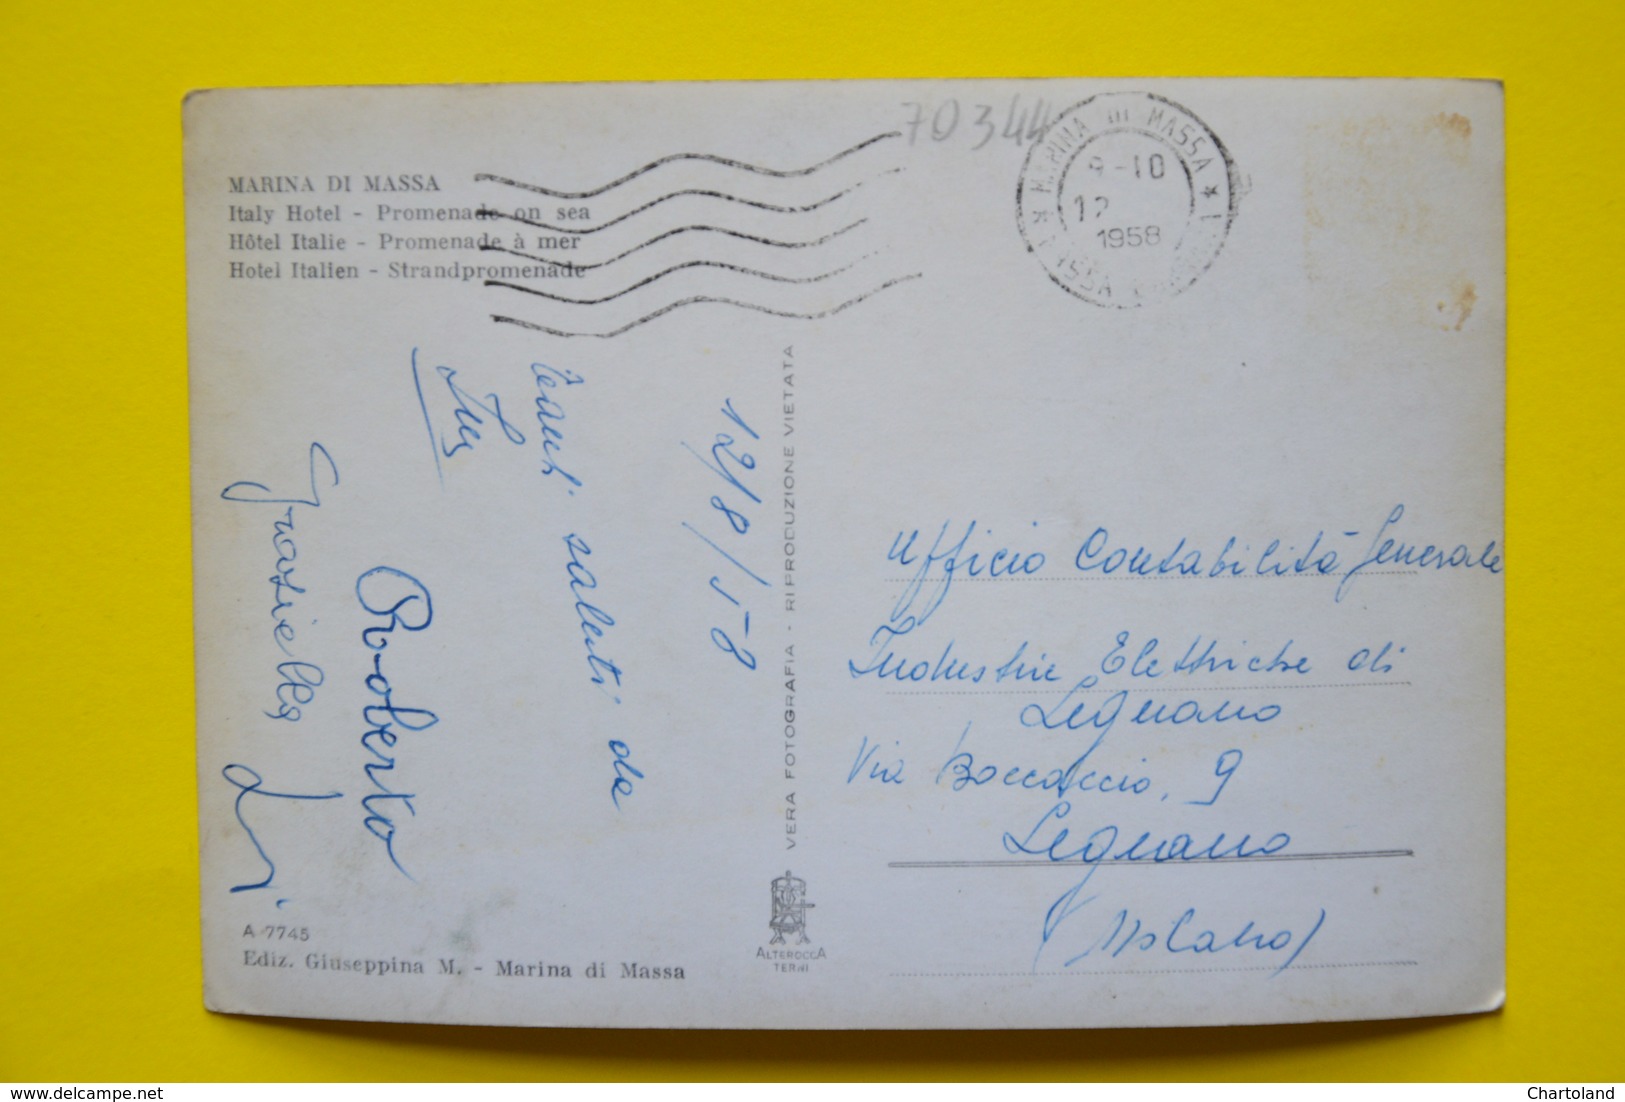 70344
MARINA DI MASSA
8-10
12
1958
MARINA DI MASSA
Italy Hotel - Promenade on sea
Hôtel Italie - Promenade à mer
Hotel Italien - Strandpromenade
12/8/58
Tanti saluti da
Roberto
Graziella
VERA FOTOGRAFIA - RIPRODUZIONE VIETATA
Ufficio Contabilità Generale
Industrie Elettriche di
Legnano
Via Boccaccio, 9
Legnano
(Milano)
A 7745
Ediz. Giuseppina M. - Marina di Massa
ALTEROCCA
TERNI
delcampe.net
Chartoland